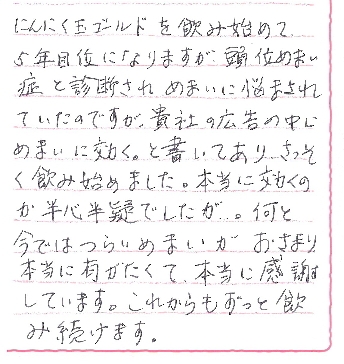 にんにく玉ゴールドを飲み始めて
5年目位になりますが、頭位めまい
症と診断され めまいに悩まされ
ていたのですが、貴社の広告の中に
めまいに効く。と書いてあり、さっそ
く飲み始めました。本当に効くの
か半心半疑でしたが。何と
今ではつらいめまいが おさまり
本当に有がたくて、本当に感謝
しています。これからもずっと飲
み続けます。